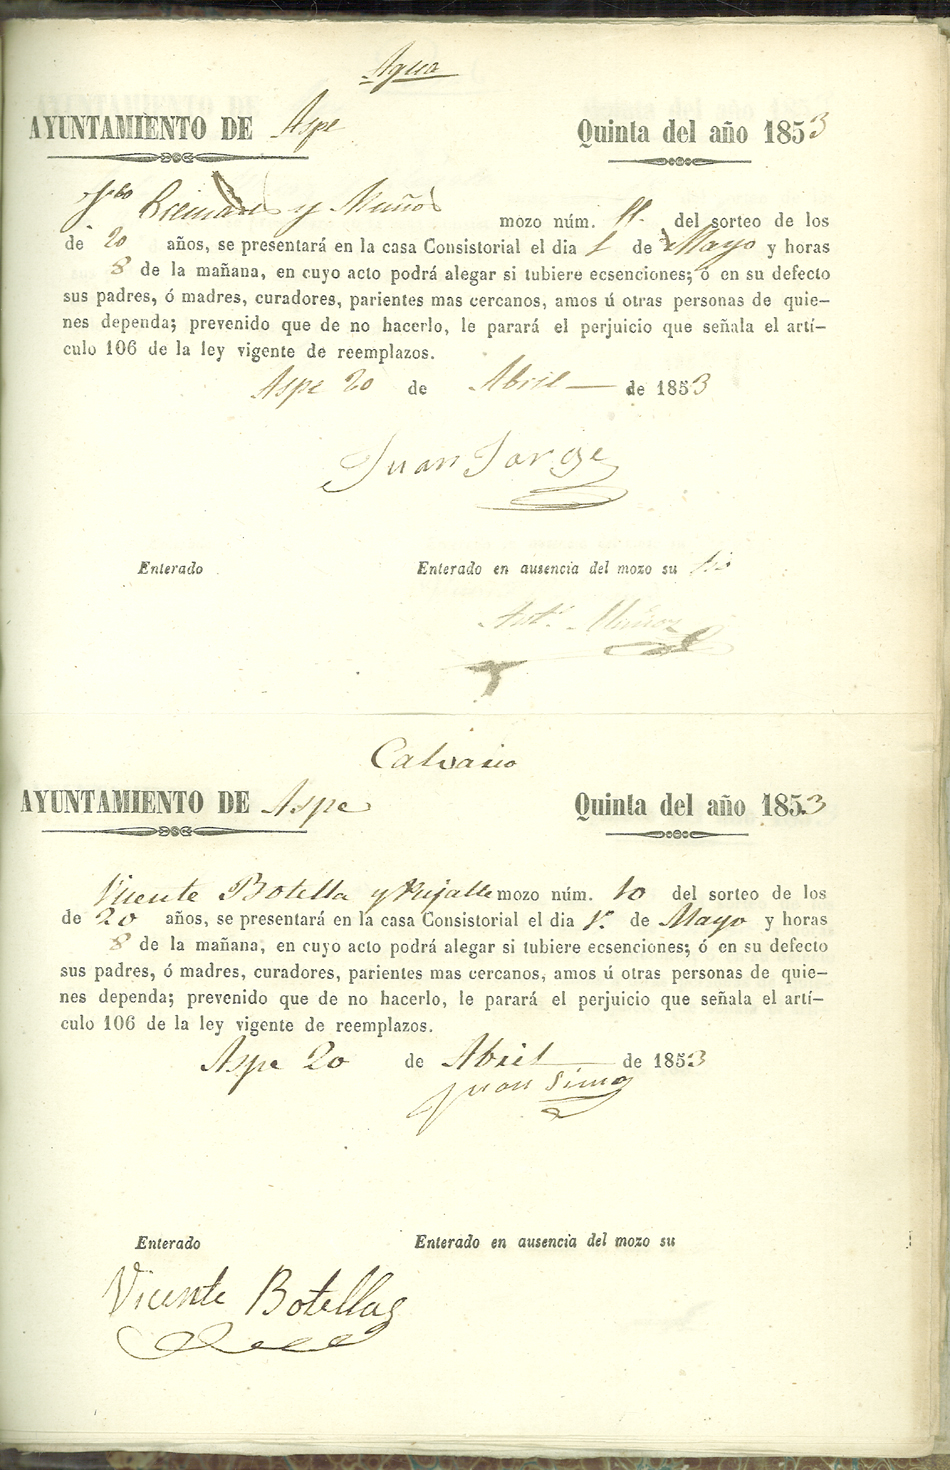 Agua
AYUNTAMIENTO DE Aspe
Quinta del año 1853
y Muños mozo núm. 11. del sorteo de los
de 20 años, se presentará en la casa Consistorial el dia 1 de Mayo y horas
8 de la mañana, en cuyo acto podrá alegar si tubiere ecsenciones; ó en su defecto
sus padres, ó madres, curadores, parientes mas cercanos, amos ú otras personas de quie-
nes dependa; prevenido que de no hacerlo, le parará el perjuicio que señala el artí-
culo 106 de la ley vigente de reemplazos.
Aspe 20 de Abril de 1853
Juan Jorge
Enterado
Enterado en ausencia del mozo su tio
Antº Muñoz
Calvario
AYUNTAMIENTO DE Aspe
Quinta del año 1853
Vicente Botella y mozo núm. 10 del sorteo de los
de 20 años, se presentará en la casa Consistorial el dia 1º de Mayo y horas
8 de la mañana, en cuyo acto podrá alegar si tubiere ecsenciones; ó en su defecto
sus padres, ó madres, curadores, parientes mas cercanos, amos ú otras personas de quie-
nes dependa; prevenido que de no hacerlo, le parará el perjuicio que señala el artí-
culo 106 de la ley vigente de reemplazos.
Aspe 20 de Abril de 1853
Juan Simo
Enterado
Enterado en ausencia del mozo su
Vicente Botella